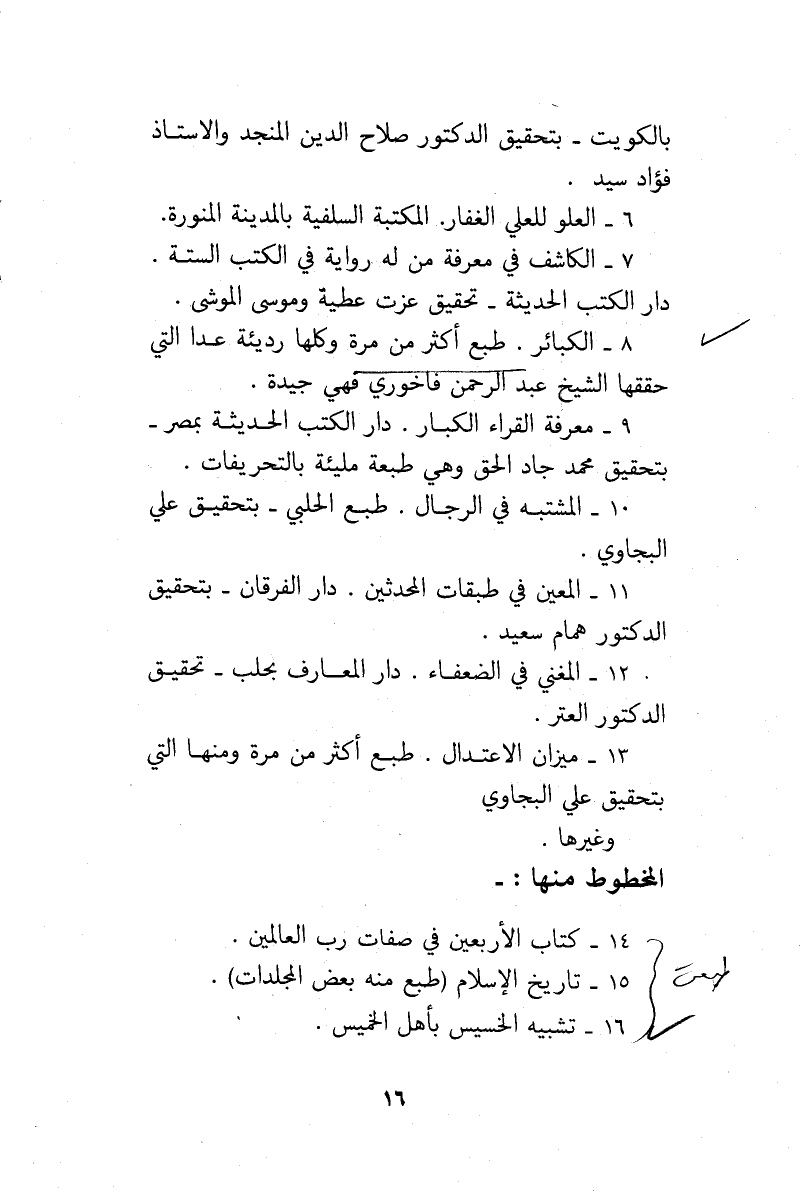 بالكويت ـ بتحقيق الدكتور صلاح الدين المنجد والاستاذ
فؤاد سيد .
٦ ـ العلو للعلي الغفار. المكتبة السلفية بالمدينة المنورة.
٧ ـ الكاشف في معرفة من له رواية في الكتب الستة .
دار الكتب الحديثة ـ تحقيق عزت عطية وموسى الموشى .
٨ ـ الكبائر . طبع أكثر من مرة وكلها رديئة عدا التي
حققها الشيخ عبد الرحمن فاخوري فهي جيدة .
٩ ـ معرفة القراء الكبار . دار الكتب الحديثة بمصر ـ
بتحقيق محمد جاد الحق وهي طبعة مليئة بالتحريفات .
١٠ ـ المشتبه في الرجال . طبع الحلبي ـ بتحقيق علي
البجاوي .
١١ ـ المعين في طبقات المحدثين . دار الفرقان ـ بتحقيق
الدكتور همام سعيد .
١٢ ـ المغني في الضعفاء . دار المعارف بحلب ـ تحقيق
الدكتور العتر .
١٣ ـ ميزان الاعتدال . طبع أكثر من مرة ومنها التي
بتحقيق علي البجاوي
وغيرها .
المخطوط منها : ـ
١٤ ـ كتاب الأربعين في صفات رب العالمين .
١٥ ـ تاريخ الإسلام (طبع منه بعض المجلدات) .
طبعت
١٦ ـ تشبيه الخسيس بأهل الخميس .
١٦